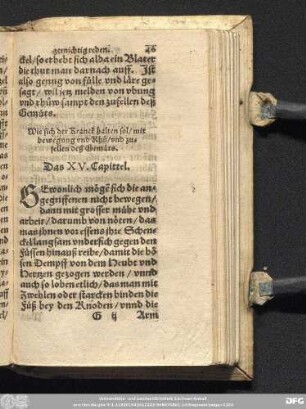 gemichtigreden. 26
ckel/so erhebt sich alda ein Blater
die thut man darnach auff. Ist
also genug von fülle vnd läre ge-
sagt/ wil hen melden von vbung
vnd rhüw sampt den zufellen deß
Gemüts.
Wie sich der Kranck halten sol/ mit
bewegung vnd Rhů/ vnd zu-
fellen deß Gemüts.
Das XV. Capittel.
GEwonlich mögē sich die an-
gegriffenen nicht bewegen/
dann mit grosser mühe vnd
arbeit/ darumb von nöten/ das
man ihnen vor essens ihre Schen-
ckel langsam vndersich gegen den
Füssen hinauß reibe/ damit die bö-
sen Dempff von dem Heubt vnd
Hertzen gezogen werden/ vnnd
auch so loben etlich/ das man mit
Zwehlen oder starcken binden die
Füß bey den Knoden/ vnnd die
G ij Arm
DFG